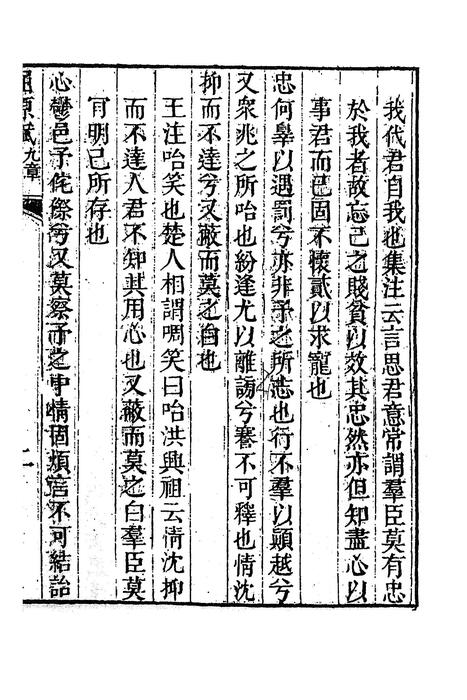 我代君自我也集注云言思君意常謂羣臣莫有忠
於我者故忘己之賤貧以效其忠然亦但知盡心以
事君而已固不懷貳以求寵也
忠何辠以遇罰兮亦非予之所志也行不羣以顚越兮
又衆兆之所咍也紛逢尤以離謗兮謇不可釋也情沈
抑而不達兮又蔽而莫之白也
王注咍笑也楚人相謂啁笑曰咍洪興祖云情沈抑
而不達人君不知其用心也又蔽而莫之白羣臣莫
肎明己所存也
心鬱邑予侘傺兮又莫察予之中情固煩言不可結詒
屈原賦 九章
二